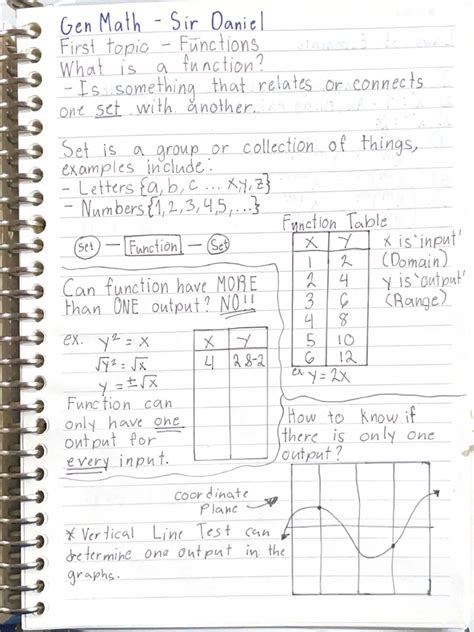 Gen Math - Sir Daniel
First topic - Functions
What is a function?
- Is something that relates or connects
one set with another.
Set is a group or collection of things,
examples include:
- Letters {a, b, c ... x, y, z}
- Numbers {1, 2, 3, 4, 5, ...}
Set — Function — Set
Function Table
X Y
1 2
2 4
3 6
4 8
5 10
6 12
ex. y = 2x
x is 'input'
(Domain)
y is 'output'
(Range)
Can function have MORE
than ONE output? NO!!
ex. y² = x
√y² = √x
y = ±√x
X Y
4 2 &-2
Function can
only have one
output for
every input.
How to know if
there is only one
output?
coordinate
plane
* Vertical Line Test can
determine one output in the
graphs.